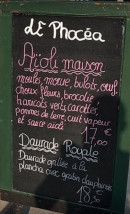 LE Phocéa
Aïoli maison
moules, morue, bulots, œuf,
choux fleurs, brocolis
haricots verts, carottes,
pommes de terre, cuit vapeur
et sauce aïoli
17,00
Daurade Royale
Daurade grillée à la
plancha avec gratin dauphinois
18,50